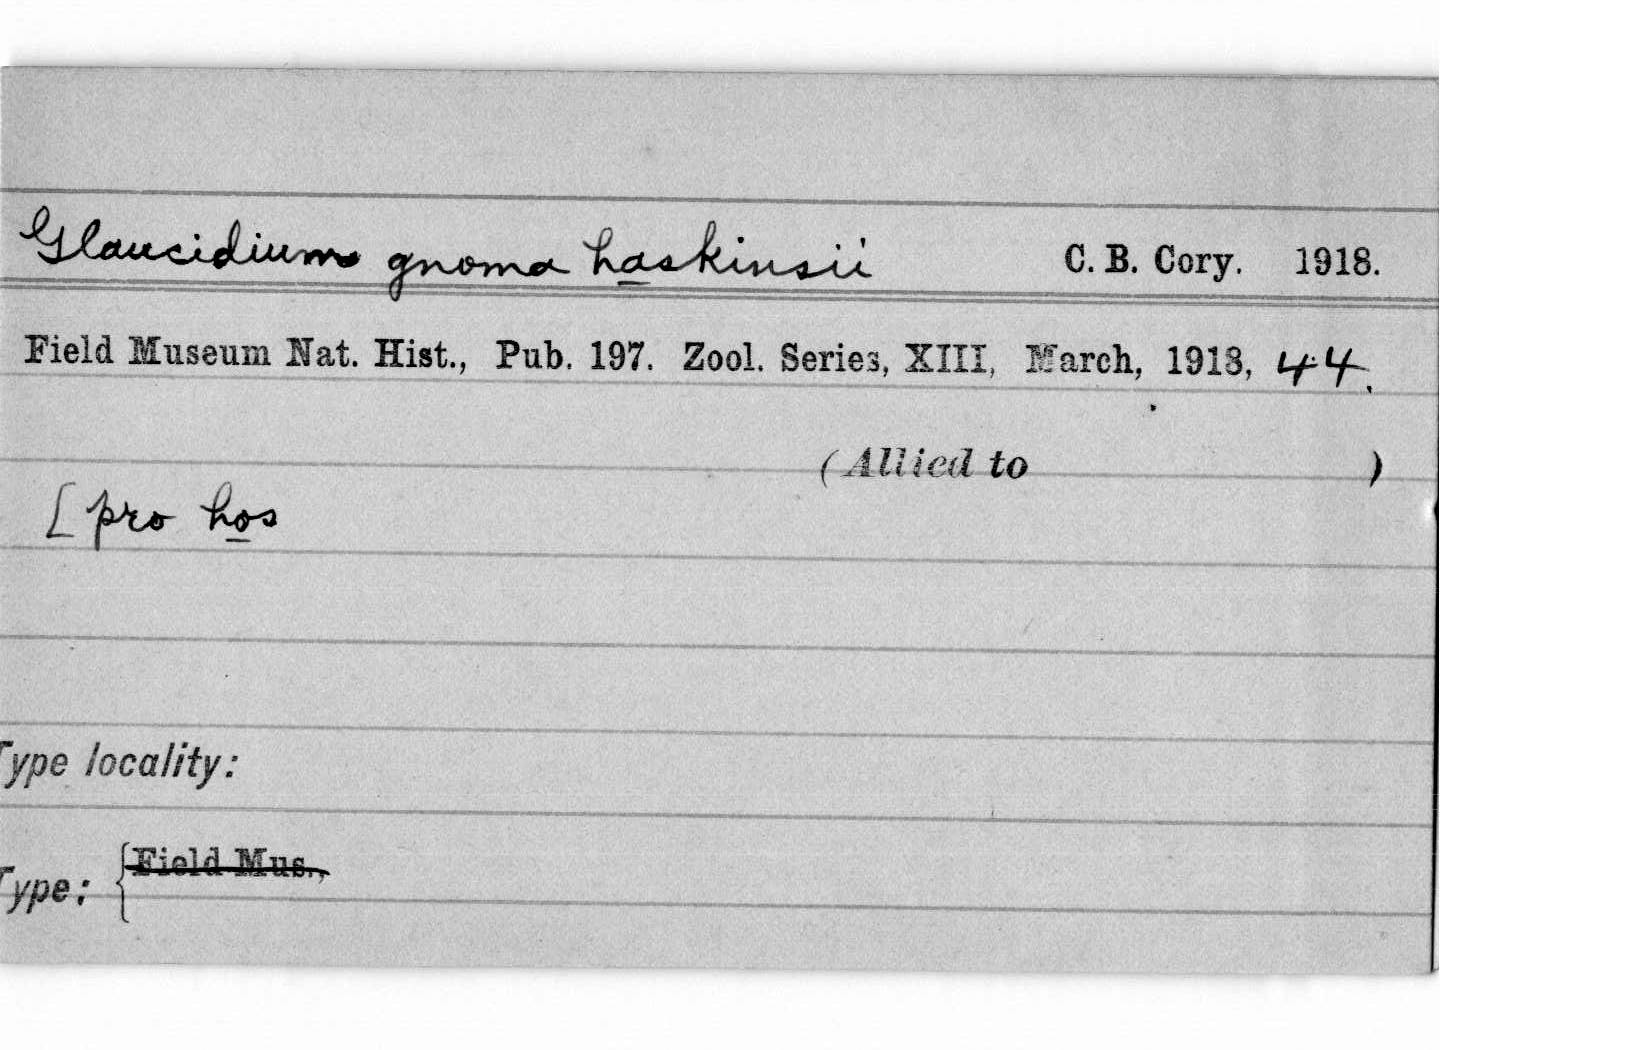 Glaucidium gnoma haskinsii C. B. Cory. 1918.
Field Museum Nat. Hist., Pub. 197. Zool. Series, XIII, March, 1918, 44.
(Allied to )
[pro hos
Type locality:
Type: {Field Mus.,